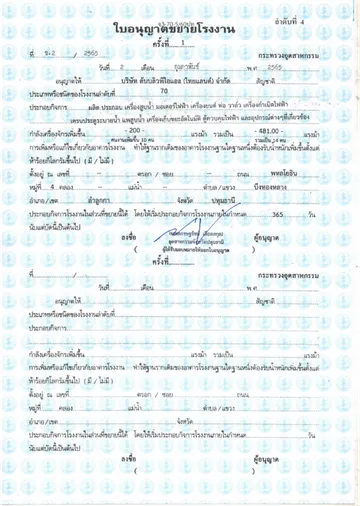 ลำดับที่ 4
ใบอนุญาตขยายโรงงาน
ครั้งที่ 1
ที่ ข.2 / 2565 กระทรวงอุตสาหกรรม
วันที่ 2 เดือน กุมภาพันธ์ พ.ศ. 2565
อนุญาตให้ บริษัท ดับบลิวพีไอแอล (ไทยแลนด์) จำกัด สัญชาติ
ประเภทหรือชนิดของโรงงานลำดับที่ 70
ประกอบกิจการ ผลิต ประกอบ เครื่องสูบน้ำ มอเตอร์ไฟฟ้า เครื่องยนต์ ท่อ วาล์ว เครื่องกำเนิดไฟฟ้า
เครื่องเก็บขยะอัตโนมัติ ตู้ควบคุมไฟฟ้า และอุปกรณ์ต่างๆที่เกี่ยวข้อง
กำลังเครื่องจักรเพิ่มขึ้น - 200 - แรงม้า รวมเป็น - 481.00 - แรงม้า
การเพิ่มหรือแก้ไขเกี่ยวกับอาคารโรงงาน ทำให้ฐานรากเดิมของอาคารโรงงานฐานใดฐานหนึ่งต้องรับน้ำหนักเพิ่มขึ้นตั้งแต่
ห้าร้อยกิโลกรัมขึ้นไป ( มี / ไม่มี )
ตั้งอยู่ ณ เลขที่ - ตรอก / ซอย - ถนน พหลโยธิน
หมู่ที่ 4 คลอง - แม่น้ำ - ตำบล / แขวง บึงทองหลาง
อำเภอ / เขต ลำลูกกา จังหวัด ปทุมธานี
ประกอบกิจการโรงงานในส่วนที่ขยายนี้ได้ โดยให้เริ่มประกอบกิจการโรงงานภายในกำหนด 365 วัน
นับแต่บัดนี้เป็นต้นไป
ลงชื่อ ผู้อนุญาต
ครั้งที่
ที่ / กระทรวงอุตสาหกรรม
วันที่ เดือน พ.ศ.
อนุญาตให้ สัญชาติ
ประเภทหรือชนิดของโรงงานลำดับที่
ประกอบกิจการ
กำลังเครื่องจักรเพิ่มขึ้น แรงม้า รวมเป็น แรงม้า
การเพิ่มหรือแก้ไขเกี่ยวกับอาคารโรงงาน ทำให้ฐานรากเดิมของอาคารโรงงานฐานใดฐานหนึ่งต้องรับน้ำหนักเพิ่มขึ้นตั้งแต่
ห้าร้อยกิโลกรัมขึ้นไป ( มี / ไม่มี )
ตั้งอยู่ ณ เลขที่ ตรอก / ซอย ถนน
หมู่ที่ คลอง แม่น้ำ ตำบล / แขวง
อำเภอ / เขต จังหวัด
ประกอบกิจการโรงงานในส่วนที่ขยายนี้ได้ โดยให้เริ่มประกอบกิจการโรงงานภายในกำหนด วัน
นับแต่บัดนี้เป็นต้นไป
ลงชื่อ ผู้อนุญาต
( )